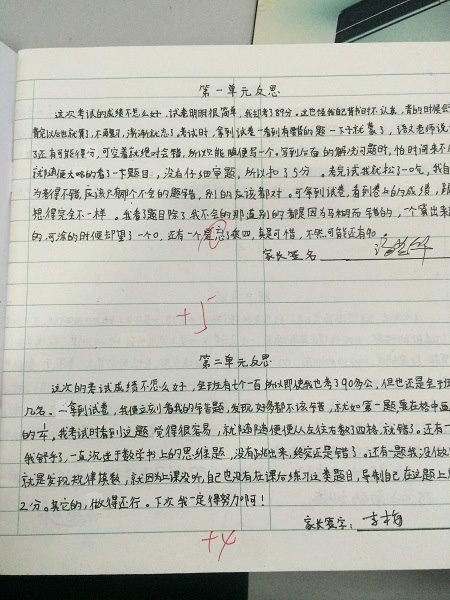 第一单元反思
这次考试的成绩不怎么好,试卷明明很简单,我却考了89分。这也怪我自己背书时不认真,背的时候会
背完以后也就算了,不再复习,渐渐就忘了。考试时,拿到试卷一看到有要背的题一下子就蒙了,语文老师说
了还有可能得分,可空着就绝对会错,所以只能随便写一个。写到后面的解决问题时,怕时间来不
就随便大略的看了一下题目,没有仔细审题,所以扣了5分。考完试我就松了一吃,我自
为考得不错,应该只有那个不会的题会错,别的应该都对。可拿到试卷,看到卷上的成绩,跟
想得完全不一样。我看了题目除了我不会的那道别的都是因为马糊而会错的,一个算出来
的,可涂的时候却望了一个0,还有一个是忘了乘四,真是可惜,不然可能还有90。
家长签名
+5
第二单元反思
这次的考试成绩不怎么好,全班有七个一百所以即使我也考了90多分,但也还是全于
几名。一拿到试卷,我便立刻看我的错题,发现好多都不该错,就如第一题要在格中画
的1/4。我考试时看到这题觉得很容易,就随随便便从左往右数了四格,就错了。还有一
我舒予了,一直沉迷于数学书上的思维题,没有跳出来,终究还是错了。还有一题我没做
就是发现规律填数,就因为上课没听,自己也没有在课后练习这类题目,导制自己在这题上
2分。其它的,做得还行。下次我一定得努力啊!
家长签字:
+4